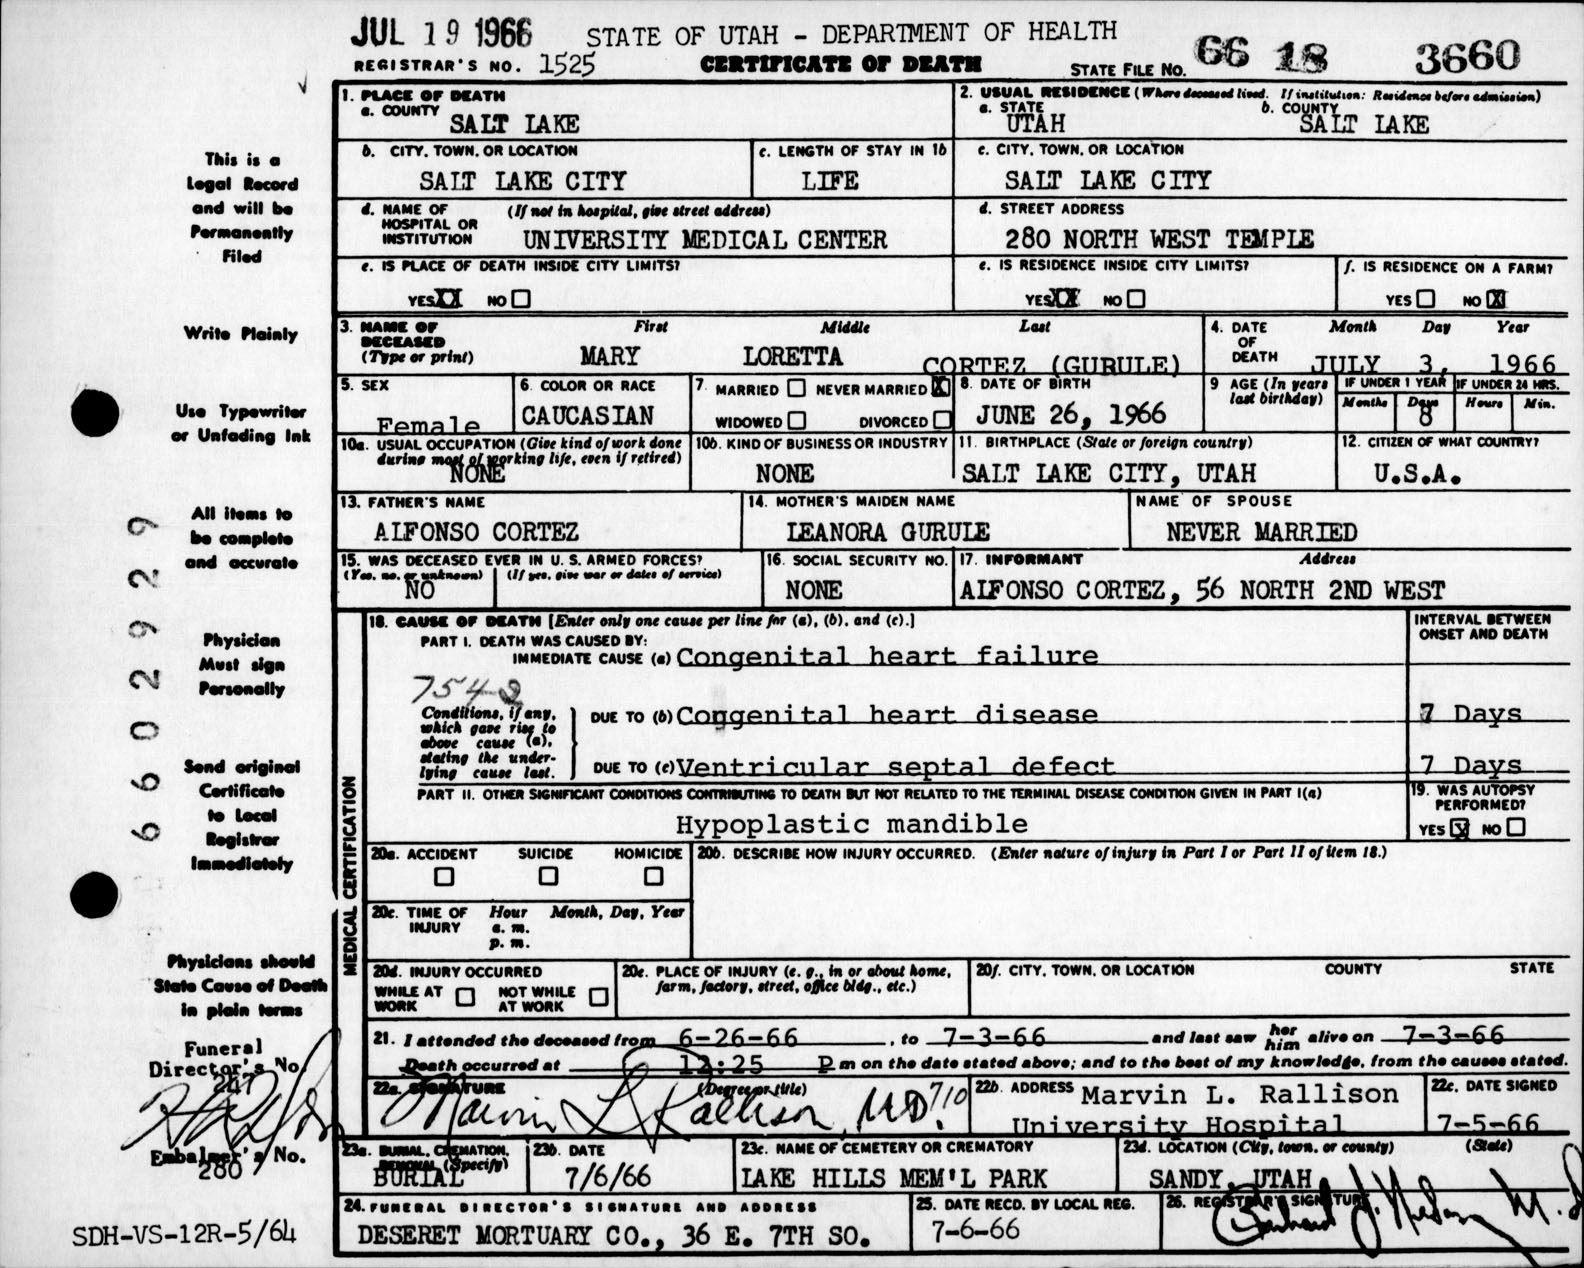 JUL 19 1966 STATE OF UTAH - DEPARTMENT OF HEALTH
REGISTRAR'S NO. 1525 CERTIFICATE OF DEATH STATE FILE NO. 66 18 3660
1. PLACE OF DEATH
a. COUNTY
SALT LAKE
2. USUAL RESIDENCE (Where deceased lived. If institution: Residence before admission)
a. STATE b. COUNTY
UTAH SALT LAKE
b. CITY, TOWN, OR LOCATION c. LENGTH OF STAY IN 1b c. CITY, TOWN, OR LOCATION
SALT LAKE CITY LIFE SALT LAKE CITY
d. NAME OF HOSPITAL OR INSTITUTION (If not in hospital, give street address)
UNIVERSITY MEDICAL CENTER
d. STREET ADDRESS
280 NORTH WEST TEMPLE
e. IS PLACE OF DEATH INSIDE CITY LIMITS?
YES XX NO
e. IS RESIDENCE INSIDE CITY LIMITS?
YES XX NO
f. IS RESIDENCE ON A FARM?
YES NO X
3. NAME OF DECEASED (Type or print) First Middle Last
MARY LORETTA CORTEZ (GURULE)
4. DATE OF DEATH Month Day Year
JULY 3, 1966
5. SEX
Female
6. COLOR OR RACE
CAUCASIAN
7. MARRIED NEVER MARRIED X
WIDOWED DIVORCED
8. DATE OF BIRTH
JUNE 26, 1966
9 AGE (In years last birthday) IF UNDER 1 YEAR IF UNDER 24 HRS.
Months Days Hours Min.
8
10a. USUAL OCCUPATION (Give kind of work done during most of working life, even if retired)
NONE
10b. KIND OF BUSINESS OR INDUSTRY
NONE
11. BIRTHPLACE (State or foreign country)
SALT LAKE CITY, UTAH
12. CITIZEN OF WHAT COUNTRY?
U.S.A.
13. FATHER'S NAME
ALFONSO CORTEZ
14. MOTHER'S MAIDEN NAME
LEANORA GURULE
NAME OF SPOUSE
NEVER MARRIED
15. WAS DECEASED EVER IN U. S. ARMED FORCES?
(Yes, no, or unknown) (If yes, give war or dates of service)
NO
16. SOCIAL SECURITY NO.
NONE
17. INFORMANT Address
ALFONSO CORTEZ, 56 NORTH 2ND WEST
MEDICAL CERTIFICATION
18. CAUSE OF DEATH [Enter only one cause per line for (a), (b), and (c).]
INTERVAL BETWEEN ONSET AND DEATH
PART I. DEATH WAS CAUSED BY:
IMMEDIATE CAUSE (a) Congenital heart failure
Conditions, if any, which gave rise to above cause (a), stating the underlying cause last.
DUE TO (b) Congenital heart disease 7 Days
DUE TO (c) Ventricular septal defect 7 Days
PART II. OTHER SIGNIFICANT CONDITIONS CONTRIBUTING TO DEATH BUT NOT RELATED TO THE TERMINAL DISEASE CONDITION GIVEN IN PART I(a)
Hypoplastic mandible
19. WAS AUTOPSY PERFORMED?
YES X NO
20a. ACCIDENT SUICIDE HOMICIDE
20b. DESCRIBE HOW INJURY OCCURRED. (Enter nature of injury in Part I or Part II of item 18.)
20c. TIME OF INJURY Hour Month, Day, Year
a. m.
p. m.
20d. INJURY OCCURRED
WHILE AT WORK NOT WHILE AT WORK
20e. PLACE OF INJURY (e. g., in or about home, farm, factory, street, office bldg., etc.)
20f. CITY, TOWN, OR LOCATION COUNTY STATE
21. I attended the deceased from 6-26-66, to 7-3-66 and last saw her him alive on 7-3-66
Death occurred at 12:25 P m on the date stated above; and to the best of my knowledge, from the causes stated.
22a. SIGNATURE (Degree or title)
Marvin L Rallison, M.D. 710
22b. ADDRESS Marvin L. Rallison
University Hospital
22c. DATE SIGNED
7-5-66
23a. BURIAL, CREMATION, REMOVAL (Specify)
BURIAL
23b. DATE
7/6/66
23c. NAME OF CEMETERY OR CREMATORY
LAKE HILLS MEM'L PARK
23d. LOCATION (City, town, or county) (State)
SANDY, UTAH
24. FUNERAL DIRECTOR'S SIGNATURE AND ADDRESS
DESERET MORTUARY CO., 36 E. 7TH SO.
25. DATE RECD. BY LOCAL REG.
7-6-66
26. REGISTRAR'S SIGNATURE
This is a
Legal Record
and will be
Permanently
Filed
Write Plainly
Use Typewriter
or Unfading Ink
All items to
be complete
and accurate
Physician
Must sign
Personally
Send original
Certificate
to Local
Registrar
Immediately
Physicians should
State Cause of Death
in plain terms
Funeral
Director's No.
247
Embalmer's No.
280
6602929
SDH-VS-12R-5/64